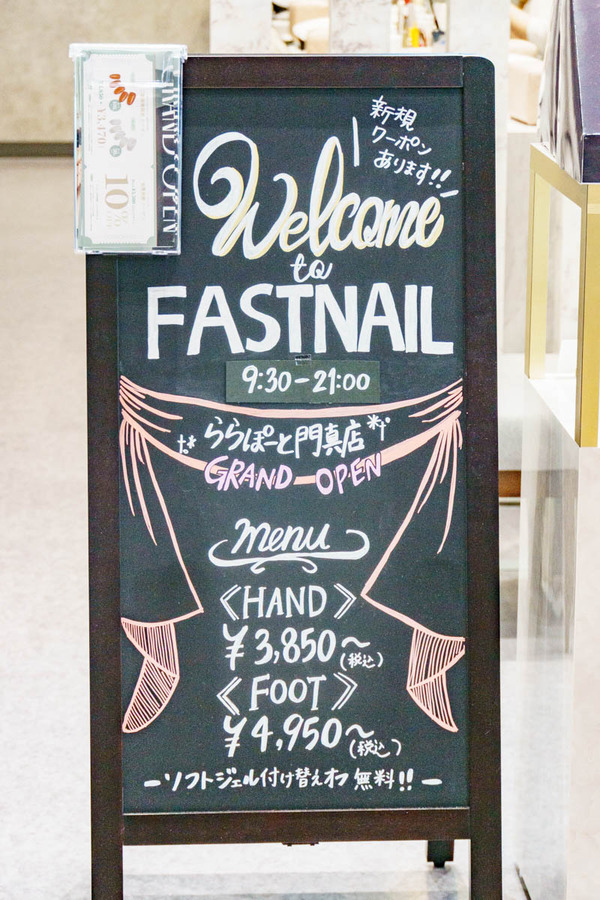 新規
クーポン
あります!!
Welcome
to
FASTNAIL
9:30-21:00
ららぽーと門真店
GRAND OPEN
menu
《HAND》
¥3,850~(税込)
《FOOT》
¥4,950~(税込)
ーソフトジェル付け替えオフ 無料!!ー
GRAND OPEN
10%